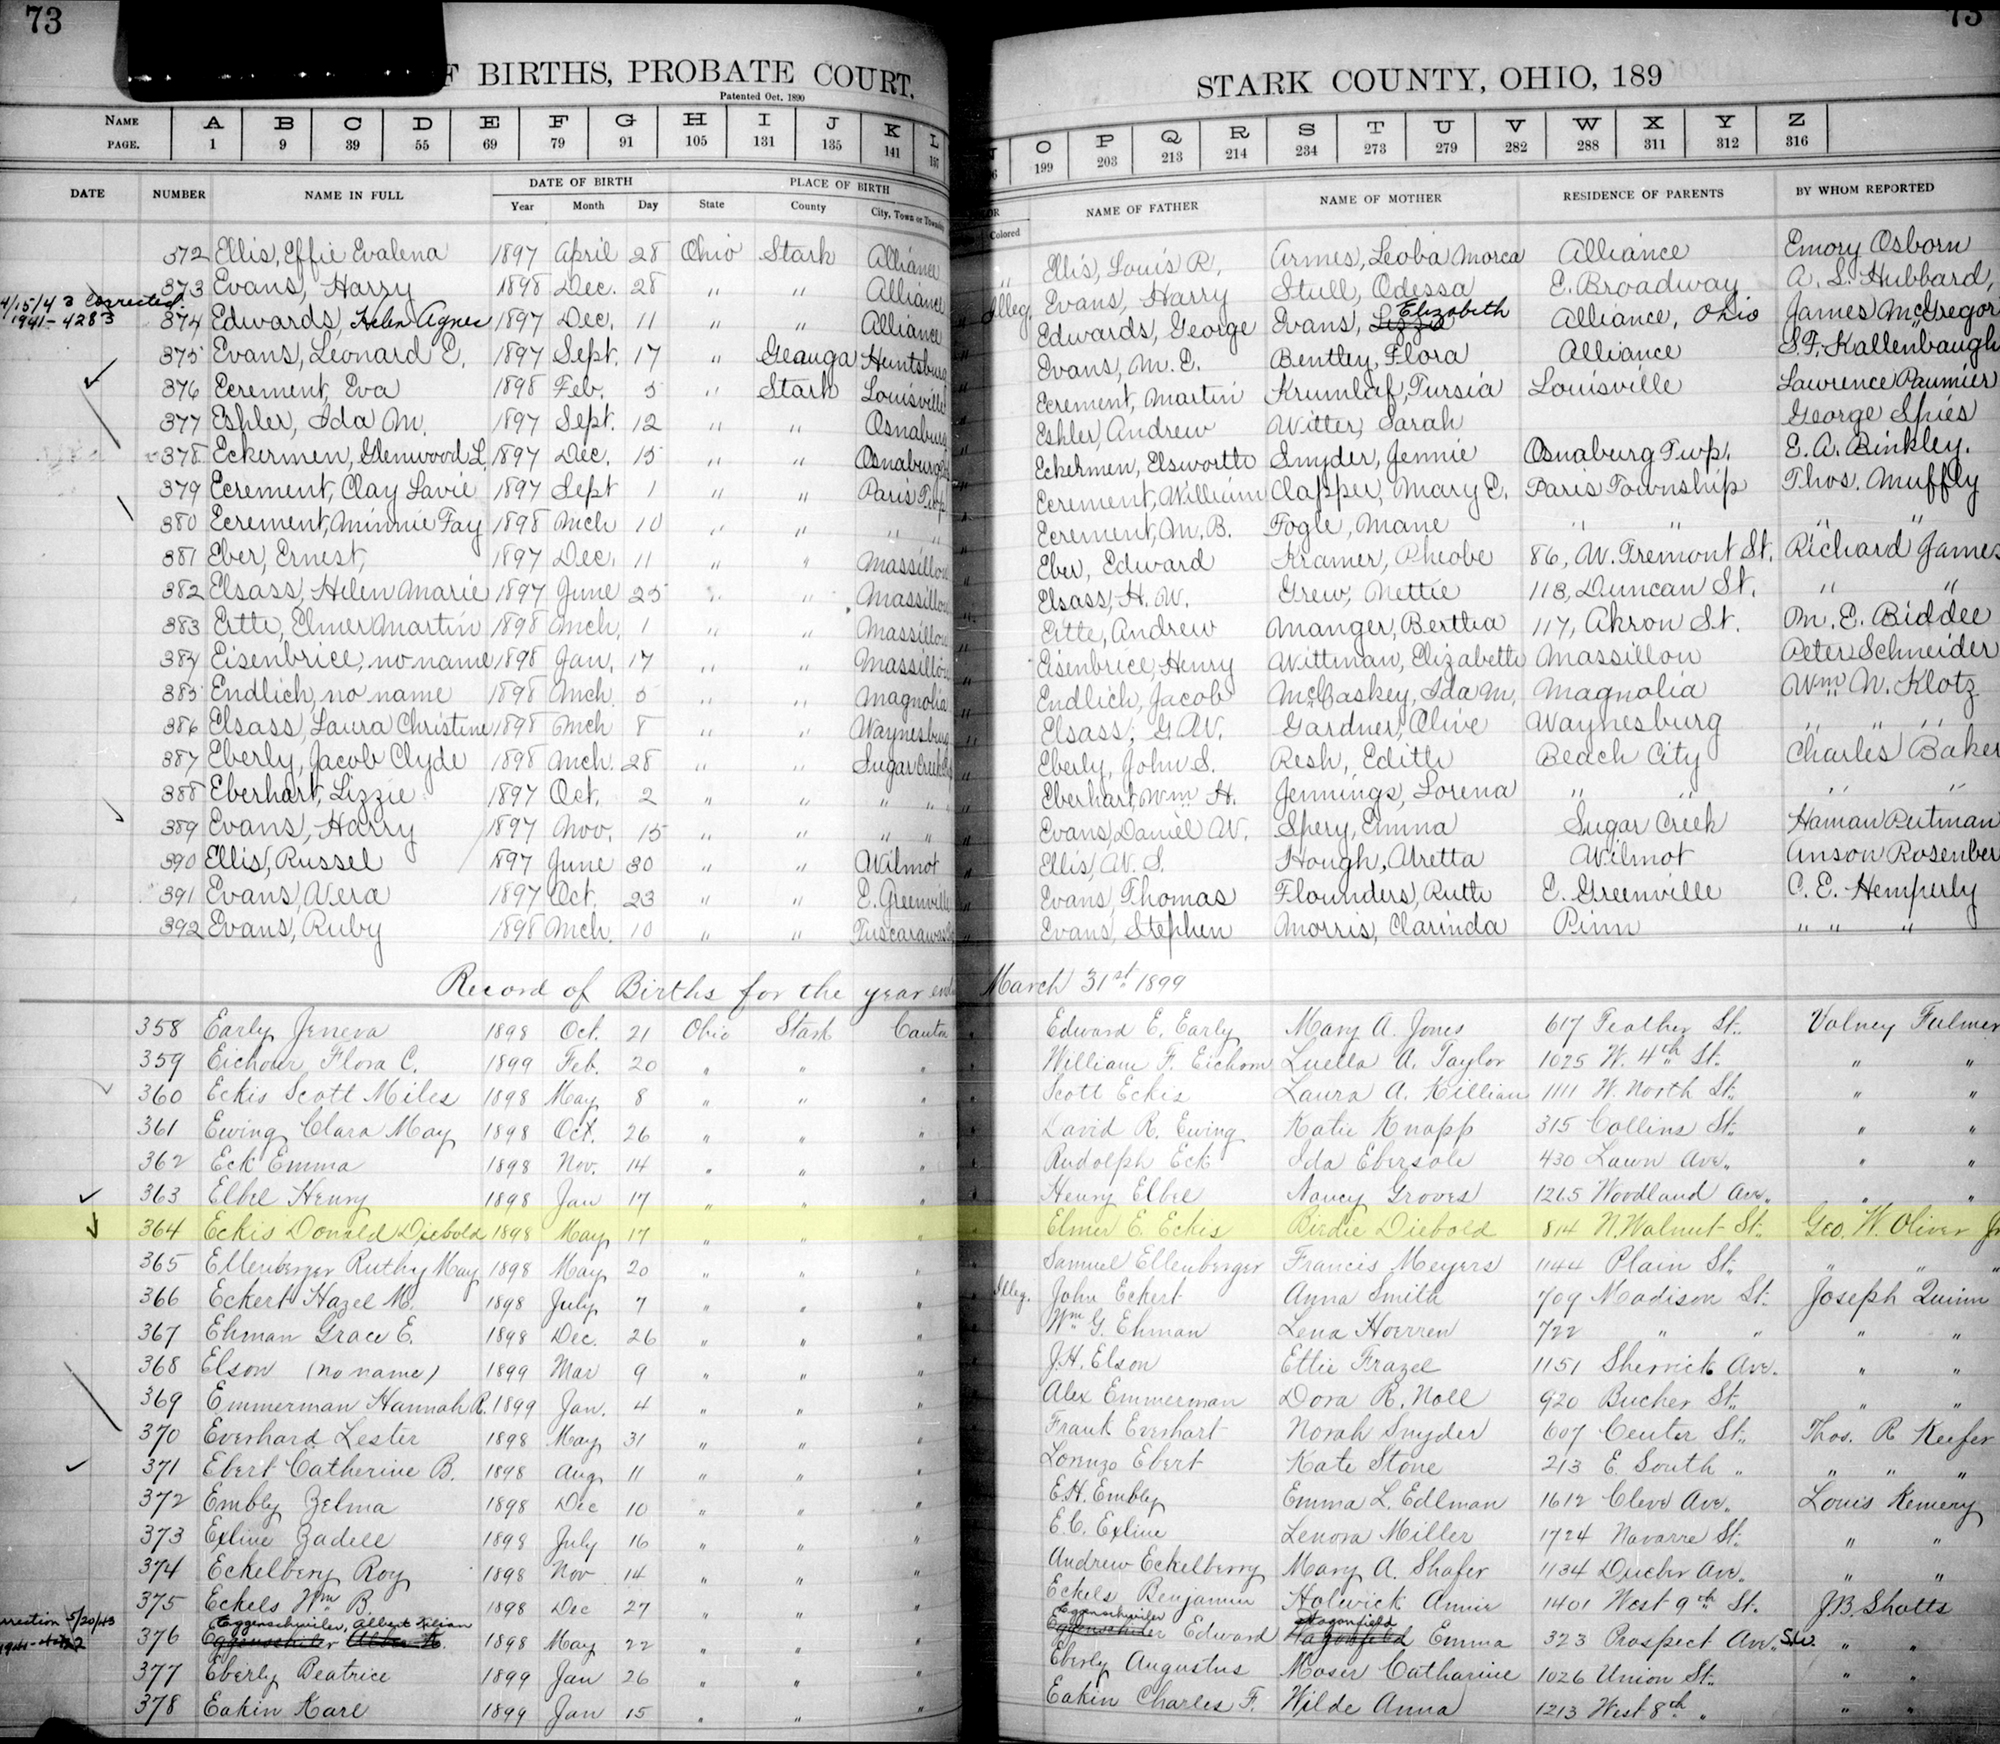 73
73
F BIRTHS, PROBATE COURT.
STARK COUNTY, OHIO, 189
Patented Oct. 1890
NAME A B C D E F G H I J K L O P Q R S T U V W X Y Z
PAGE. 1 9 39 55 69 79 91 105 131 135 141 167 6 199 203 213 214 234 273 279 282 288 311 312 316
DATE NUMBER NAME IN FULL DATE OF BIRTH PLACE OF BIRTH NAME OF FATHER NAME OF MOTHER RESIDENCE OF PARENTS BY WHOM REPORTED
Year Month Day State County City, Town or Township Colored
372 Ellis, Effie Evalena 1897 April 28 Ohio Stark Alliance " Ellis, Louis R. Armes, Leoba Morca Alliance Emory Osborn
373 Evans, Harry 1898 Dec. 28 " " Alliance Evans, Harry Stull, Odessa E. Broadway A. S. Hubbard,
4/15/43 Corrected 1941-4283 374 Edwards, Helen Agnes 1897 Dec. 11 " " Alliance Illeg. Edwards, George Evans, Lizzie Elizabeth Alliance, Ohio James McGregor
375 Evans, Leonard E. 1897 Sept. 17 " Geauga Huntsburg " Evans, M. E. Bentley, Flora Alliance S. F. Kallenbaugh
376 Ecrement, Eva 1898 Feb. 5 " Stark Louisville " Ecrement, Martin Krumlaf, Tursia Louisville Lawrence Paumier
377 Eshler, Ida M. 1897 Sept. 12 " " Osnaburg " Eshler, Andrew Witter, Sarah George Spies
378 Eckermen, Glenwood L. 1897 Dec. 15 " " Osnaburg " Eckermen, Elsworth Snyder, Jennie Osnaburg Twp. E. A. Binkley.
379 Ecrement, Clay Lavie 1897 Sept 1 " " Paris Twp " Ecrement, William Clapper, Mary E. Paris Township Thos. Muffly
380 Ecrement, Minnie Fay 1898 Mch 10 " " " " " Ecrement, M. B. Fogle, Mane " " " "
381 Eber, Ernest, 1897 Dec. 11 " " Massillon " Eber, Edward Kramer, Pheobe 86, W. Tremont St. Richard James
382 Elsass, Helen Marie 1897 June 25 " " Massillon " Elsass, H. W. Grew, Nettie 113, Duncan St. " "
383 Eitte, Elmer Martin 1898 Mch. 1 " " Massillon " Eitte, Andrew Manger, Bertha 117, Akron St. M. E. Biddle
384 Eisenbrice, no name 1898 Jan. 17 " " Massillon " Eisenbrice, Henry Wittman, Elizabeth Massillon Peter Schneider
385 Endlich, no name 1898 Mch. 5 " " Magnolia " Endlich, Jacob McCaskey, Ida M. Magnolia Wm. N. Klotz
386 Elsass, Laura Christine 1898 Mch 8 " " Waynesburg " Elsass, G. W. Gardner, Olive Waynesburg " " "
387 Eberly, Jacob Clyde 1898 Mch. 28 " " Sugar Creek " Eberly, John S. Resh, Edith Beach City Charles Baker
388 Eberhart, Lizzie 1897 Oct. 2 " " " " " Eberhart, Wm H. Jennings, Lorena " " " "
389 Evans, Harry 1897 Nov. 15 " " " " " Evans, Daniel W. Spery, Emma Sugar Creek Haman Putman
390 Ellis, Russel 1897 June 30 " " Wilmot " Ellis, W. S. Hough, Uretta Wilmot Anson Rosenber
391 Evans, Vera 1897 Oct. 23 " " E. Greenville " Evans, Thomas Flounders, Ruth E. Greenville C. E. Hemperly
392 Evans, Ruby 1898 Mch. 10 " " Tuscarawas " Evans, Stephen Morris, Clarinda Pinn " " "
Record of Births for the year end March 31st 1899
358 Early Jeneva 1898 Oct. 21 Ohio Stark Canton " Edward E. Early Mary A. Jones 617 Feather St. Volney Fulmer
359 Eichour Flora C. 1899 Feb. 20 " " " " William F. Eichorn Luella A. Taylor 1025 W. 4th St. " "
360 Eckis Scott Miles 1898 May 8 " " " " Scott Eckis Laura A. Killian 1111 W. North St. " "
361 Ewing Clara May 1898 Oct. 26 " " " " David R. Ewing Katie Knapp 315 Collins St. " "
362 Eck Emma 1898 Nov. 14 " " " " Rudolph Eck Ida Ebersole 430 Lawn Ave. " "
363 Elbel Henry 1898 Jan 17 " " " " Henry Elbel Nancy Groves 1265 Woodland Ave. " "
364 Eckis Donald Diebold 1898 May 17 " " " " Elmer E. Eckis Birdie Diebold 814 N. Walnut St. Geo. W. Oliver Jr
365 Ellenberger Ruthy May 1898 May 20 " " " " Samuel Ellenberger Francis Meyers 1144 Plain St. " " "
366 Eckert Hazel M. 1898 July 7 " " " Illeg. John Eckert Anna Smith 709 Madison St. Joseph Quinn
367 Ehman Grace E. 1898 Dec. 26 " " " " Wm G. Ehman Lena Hoerren 722 " " " "
368 Elson (no name) 1899 Mar 9 " " " " J. H. Elson Ettie Frazel 1151 Sherrick Ave. " "
369 Emmerman Hannah R. 1899 Jan. 4 " " " " Alex Emmerman Dora R. Noll 920 Bucher St. " "
370 Everhard Lester 1898 May 31 " " " " Frank Everhart Norah Snyder 607 Center St. Thos. R Keefer
371 Ebert Catherine B. 1898 Aug 11 " " " " Lorenzo Ebert Kate Stone 213 E. South " " " "
372 Embly Zelma 1898 Dec 10 " " " " E. H. Embly Emma L. Edlman 1612 Cleve Ave. Louis Kemery
373 Exline Zadell 1898 July 16 " " " " E. C. Exline Lenora Miller 1724 Navarre St. " "
374 Eckelbery Roy 1898 Nov 14 " " " " Andrew Eckelberry Mary A. Shafer 1134 Dueber Ave. " "
375 Eckels Wm B. 1898 Dec 27 " " " " Eckels Benjamin Holwick Annie 1401 West 9th St. J B Shotts
rrection 5/20/43 376 Eggenschwiler, Albert Filian 1898 May 22 " " " " Eggenschwiler Edward Wagonfield Emma 323 Prospect Ave. S.W. " "
377 Eberly Beatrice 1899 Jan 26 " " " " Eberly Augustus Moser Catharine 1026 Union St. " "
378 Eakin Karl 1899 Jan 15 " " " " Eakin Charles F. Wilde Anna 1213 West 8th " " "